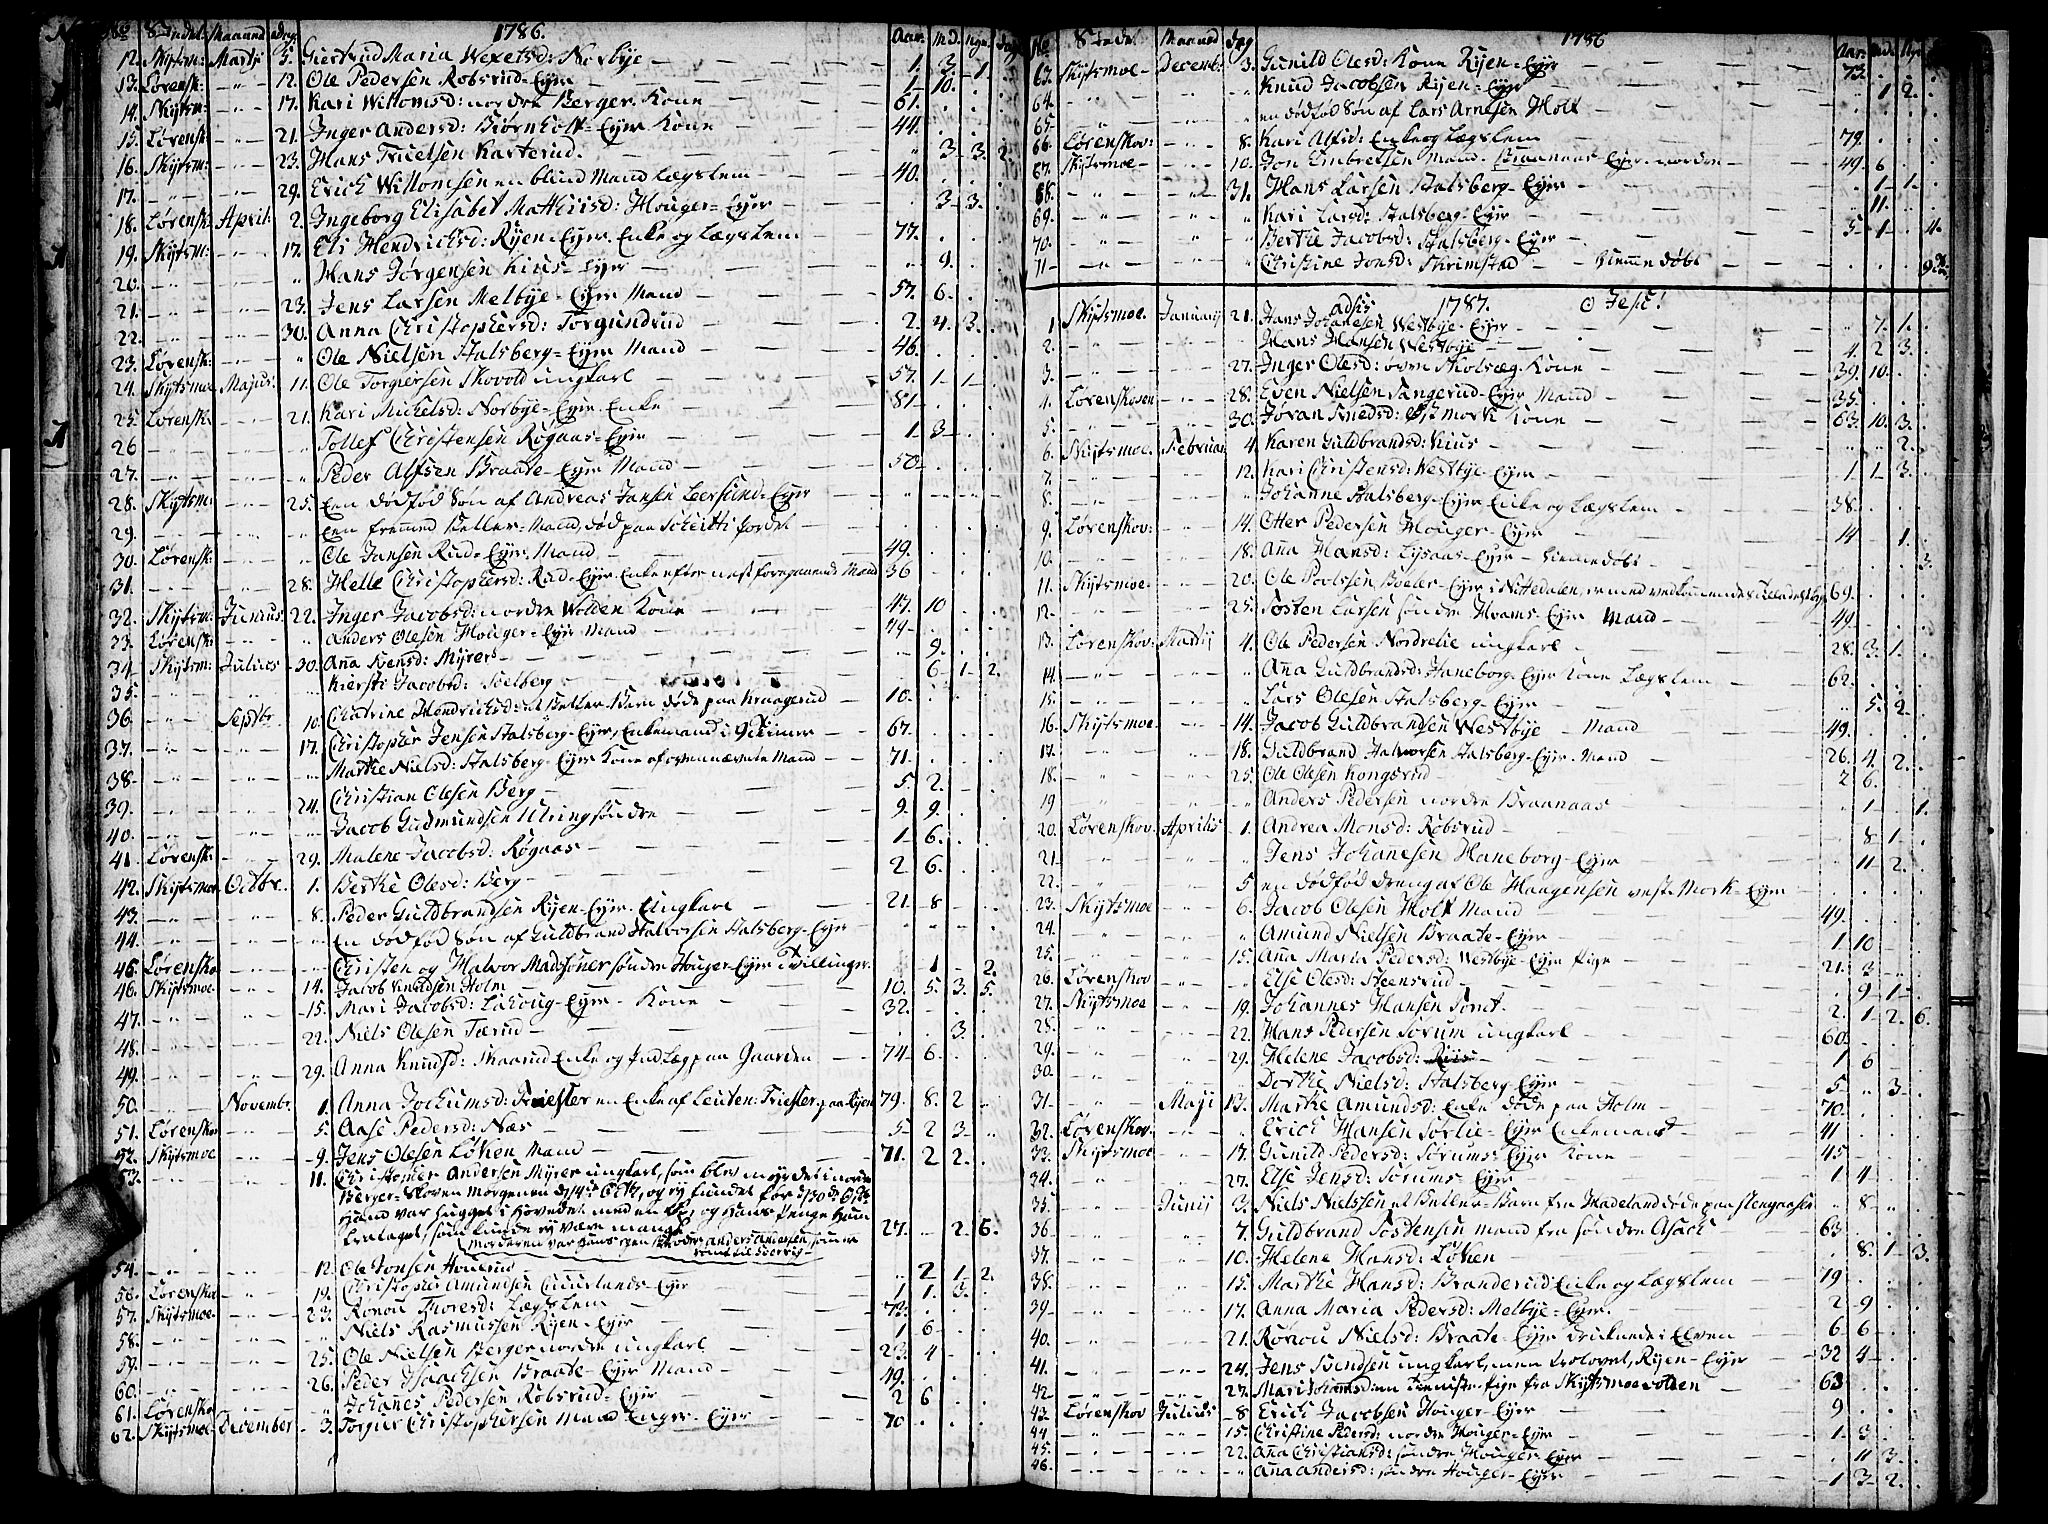 No Stedet: Maaned dag 1786. Aar. Md. Ugr. dage
12. Skytsm: Martij 5. Giertrud Maria Wexelsd: Norbye 1. 3. 1.
13. Lørensk: 12. Ole Pedersen Robsrud-Eyer 1. 10.
14. Skytsm: 17. Kari Willomsd: nordre Berger Kone 61.
15. Lørensk: 21. Inger Andersd: Biørnholt-Eyer Kone 44.
16. Skytsm: 23. Hans Truelsen Karterud. 3. 3. 2.
17. 29. Erich Willomsen en blind Mand Lægslem 40.
18. Lørensk: April: 2. Ingeborg Elisabet Matthisd: Houger-Eyer 3. 3.
19. Skytsm: 17. Eli Hendrichsd: Ryen-Eyer Enke og Lægslem 77.
20. Hans Jørgensen Kius-Eyer 9.
21. 23. Jens Larsen Melbye-Eyer Mand 57. 6.
22. 30. Anna Christophersd: Torgundrud 2. 4. 3.
23. Lørensk: Ole Nielsen Stalsberg-Eyer Mand 46.
24. Skytsmoe Majus: 11. Ole Torgiersen Skovold ungkarl 57. 1. 1.
25. Lørensk: 21. Kari Michelsd: Norbye-Eyer Enke 81
26 Tollef Christensen Røgaas-Eyer 1. 3.
27. Peder Alfsen Braate-Eyer Mand 50
28. Skytsm: 25. Een dødfød Søn af Andreas Jansen Leersund-Eyer
29. Een fremmed Betler-Mand, død paa
30. Lørensk: Ole Jansen Rud-Eyer Mand 49.
31. 28. Helle Christophersd: Rud-Eyer Enke efter nest foregaaende Mand 36
32. Skytsm: Junius: 22. Inger Jacobsd: nordre Wolden Kone 47. 10
33. Lørensk: Anders Olesen Houger-Eyer Mand 74
34. Skytsm: Julius 30. Ana Svensd: Myrer 9.
35. Kiersti Jacobsd: Soelberg 6. 1. 2.
36. Septbr. 10. Chatrine Hendrichsd: et Betler-Barn døde paa Kraagerud 10.
37. 17. Christopher Jensen Stalsberg-Eyer, Enkemand i 9 Uuger 67.
38. Marthe Nielsd: Stalsberg-Eyer Kone af ovennævnte Mand 71.
39. 24. Christian Olesen Berg 5. 2.
40. Jacob Gudmundsen Ulring søndre 9. 9.
41. Lørensk: 29. Malene Jacobsd: Røgaas 1. 6.
42. Skytsmoe Octbr. 1. Berthe Olesd: Berg 2 6.
43. 8. Peder Guldbrandsen Ryen-Eyer Ungkarl 21. 8
44. En dødfød Søn af Guldbrand Halvorsen Stalsberg-Eyer
45. Lørensko Christen og Halvor Madssøner søndre Houger-Eyer Tvillinger. 1 2.
46. Skytsmoe. 14. Jacob Knudsen Holm 10. 5. 3. 5.
47. 15. Mari Jacobsd: Lahoug-Eyer Kone 32.
48. 22. Niels Olesen Tærud 3.
49. 29. Anna Knudsd: Skaarud Enke og Ind Læg paa Gaarden 74 6.
50. Novembr. 1. Anna Jochumsd: Friester en Enke af Leuten: Friester paa Ryen 79. 8. 2
51. Lørensko 5. Aase Pedersd: Næs 5 2 3
52. Skytsmoe 9. Jens Olesen Løken Mand 71. 2 2.
53. 11. Christopher Andersen Myrer ungkarl, som blev myrdet i nordre
Berger-Skoven Morgenen d 14de Octb, og ey fundet før d 30de Octb
Hand var hugget i Hovedet med en Øxe, og Hans Penge Ham
frataget, som kunde ey være mange. 27. 2. 6.
Morderen var Hans egen Broder Anders Andersen, som er
rømt til Sverrig
54. 12. Ole Jonsen Houerud 2 1. 2.
56. Lørensko 19. Christopher Amundsen Cuurlands-Eyer 1 1. 3.
57. Skytsmoe 23. Ronou Thoresd: Lægslem 72.
58. Niels Rasmussen Ryen-Eyer 1 6
59. 25. Ole Nielsen Berger nordre ungkarl 23. 4
60. 26. Peder Isaachsen Braate-Eyer Mand 49.
61. Lørensko Johanes Pedersen Robsrud-Eyer 2 6
62. Skytsmoe December 3. Torgier Christophersen Mand Enger-Eyer 70
No Stedet Maaned dag 1786 Aar. Mdr. Ugr.
63. Skytsmoe Decemb: 3. Gunild Olesd: Kone Ryen-Eyer 73.
64. Knud Jacobsen Ryen-Eyer 1 2.
65. en dødfød Søn af Lars Arnesen Holt
66. Lørenskov: 8. Kari Alfsd: Enke og Lægslem 79.
67. Skytsmoe 10. Jon Embretsen Mand Braanaas-Eyer norden 49 6
68. 31. Hans Larsen Stalsberg-Eyer 1. 1.
69. Kari Larsd: Stalsberg-Eyer 11.
70. Berthe Jacobsd: Stalsberg-Eyer 5 1 4.
71 Christine Jonsd: Skrimstad hiemme døbt 9
adsis 1787. O Jesu!
1. Skytsmoe. Januarij 21. Hans Johanesen Westbye-Eyer 7. 1.
2. Hans Hansen Westbye 4. 2 3.
3. 27. Inger Olesd: øvre Skolsæg. Kone 39. 10.
4. Lørenskoven 28. Even Nielsen Tangerud-Eyer Mand 35.
5. 30. Jøran Svendsd: Østmork Kone 63. 10. 3.
6. Skytsmoe. Februar 4. Karen Guldbrandsd: Kius 2.
7. 12. Kari Christensd: Westbye-Eyer 1. 1. 3.
8. Johanne Stalsberg-Eyer Enke og Lægslem 38.
9. Lørenskov: 14. Otter Pedersen Houger-Eyer 14 1.
10. 18. Ana Hansd: Lysaas-Eyer hiemmedøbt 3.
11. Skytsmoe 20. Ole Poulssen Boeler-Eyer i Nittedalen, 69.
12. 25. Tosten Larsen søndre Hvams-Eyer Mand 49.
13. Lørenskov: Martij 4. Ole Pedersen Nordrelie ungkarl 28. 3. 1.
14. Ana Guldbrandsd: Haneborg-Eyer Kone Lægslem 62.
15. Lars Olesen Stalsberg-Eyer 5. 2
16. Skytsmoe 14. Jacob Guldbrandsen Westbye Mand 49.
17. 18. Guldbrand Halvorsen Stalsberg-Eyer Mand 26. 4. 2.
18. 25. Ole Olesen Kongsrud 2 6.
19 Anders Pedersen nordre Braanaas 1 1.
20. Lørenskov Aprilis 1. Andrea Monsd: Røbsrud 8 1.
21 Jens Johanesen Haneborg-Eyer 11 2.
22. 5 en dødfød dreng af Ole Haagensen vest-Mork-Eyer
23. Skytsmoe 6. Jacob Olesen Holt Mand 49.
24. Amund Nielsen Braate-Eyer 1 10
25. 15. Ana Maria Pedersd: Westbye-Eyer Pige 21. 3
26. Lørenskov Else Olesd: Steensrud 9 1.
27. Skytsmoe 19. Johannes Hansen Tomt. 2. 1. 2. 6.
28. 22. Hans Pedersen Sørum ungkarl 60.
29. 29. Helene Jacobsd: 1 6
30. Dorthe Nielsd: Stalsberg-Eyer 5 3.
31 Maji 13. Marthe Amundsd: Enke døde paa Holm 70.
32. Lørenskov: Erich Hansen Sørlie-Eyer Enkemand 41
33. Skytsmoe 17. Gunild Pedersd: Sørums-Eyer Kone 45
34. 27. Else Jensd: Sørums-Eyer 1 4
35 Junij 3. Niels Nielssen et Betler-Barn fra Hadeland døde paa Stengaasen 8
36 7. Guldbrand Tostensen mand fra søndre Asach 63
37. 10. Helene Hansd: Løken 8. 1. 3.
38. 15. Marthe Hansd: Branderud Enke og Lægslem 79
39 17. Anna Maria Pedersd: Melbye-Eyer. 2 9
40. 21. Rønnou Nielsd: Braate-Eyer druknede i Elven 6 6
41. 24. Jens Bendsen ungkarl, men trolovet, Ryen-Eyer 32 4
42 27. Mari Johansd: en Tieniste-Pige fra Skytsmoevolden 63
43. Lørenskov Julius 8 Erich Jacobsen Houger-Eyer 9
44 15. Christine Pedersd: nordre Houger-Eyer 1. 3.
45. 22. Ana Christiansd: søndre Houger-Eyer 11 3.
46. Ana Andersd: søndre Houger-Eyer 1 3 2.